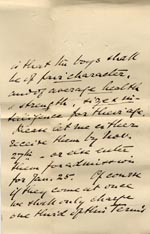 is that the boys shall
be of fair character,
and of average health
& strength, & good in-
telligence for their age.
Please let me either
receive them by Nov.
27th, or else enter
them for admission
for Jan. 25. Of course
if they come at once
we shall only charge
one third of this Term's